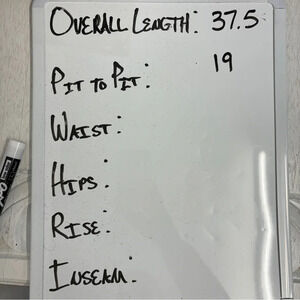 OVERALL LENGTH: 37.5
PIT TO PIT: 19
WAIST:
HIPS:
RISE:
INSEAM:
EXPO